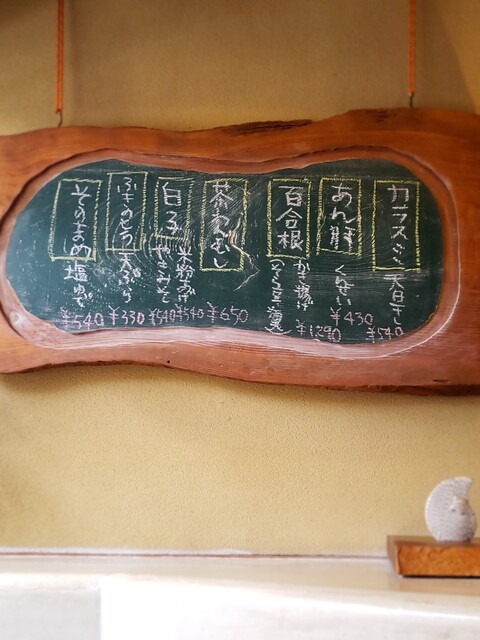 カラスミ 天日干し ¥540
あん肝 くんせい ¥430
百合根 かき揚げ ¥1290
茶わんむし ¥650
白子 米粉あげ ¥540 やきみそ ¥540
ふきのとう 天ぷら ¥330
そらまめ 塩ゆで ¥540